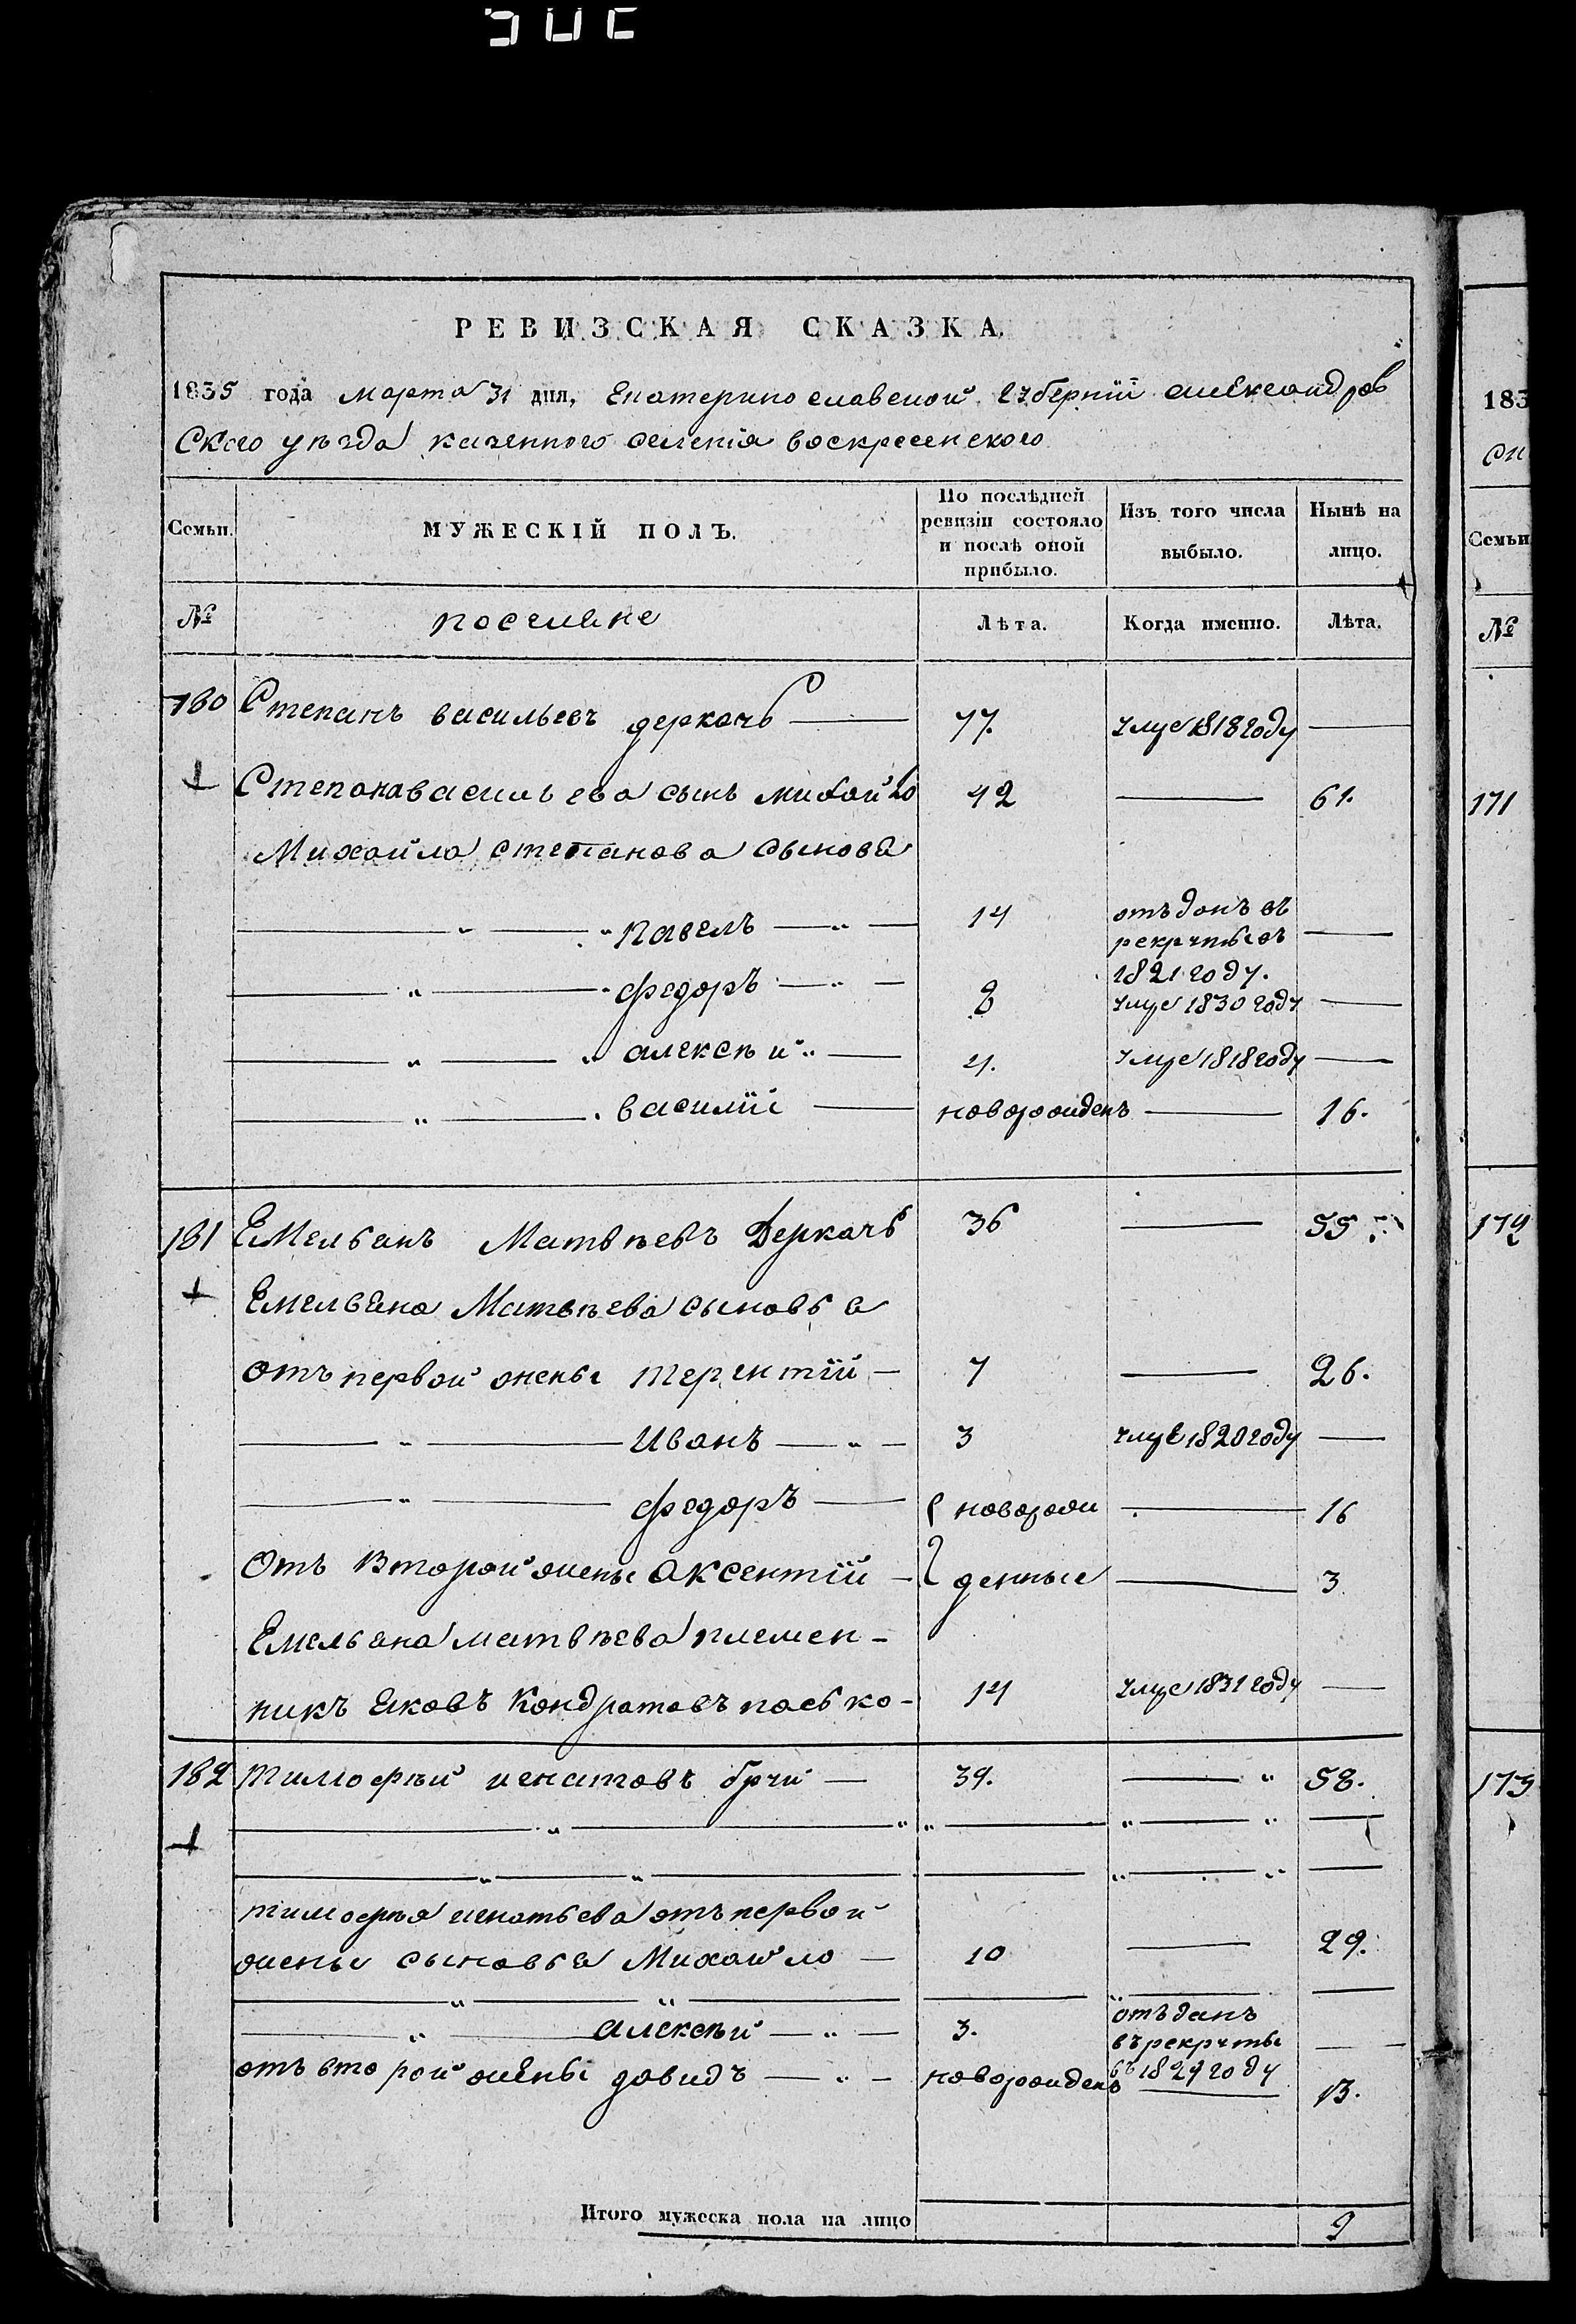 РЕВИЗСКАЯ СКАЗКА.
1835 года марта 31 дня, Екатеринославской губернїи александров
ского уѣзда казенного селенїя воскресенского
Семьи.
МУЖЕСКІЙ ПОЛЪ.
По послѣдней ревизіи состояло и послѣ оной прибыло.
Изъ того числа выбыло.
Нынѣ на лицо.
№
поселяне
Лѣта.
Когда именно.
Лѣта.
160 Степанъ васильевъ деркачь — 77. умре 1818 году —
Степана васильева сынъ михайло 42 — 61.
Михайла степанова сыновя
павелъ 14 отъданъ въ рекрутывъ 1821 году. —
федоръ 8 умре 1830 году —
алексѣй 4. умре 1818 году —
василїй новорожденъ — 16.
161 Емельянъ Матвѣевъ Деркачь 36 — 55
Емельяна Матвѣева сыновья
отъ первой жены терентїй — 7 — 26.
Иванъ 3 умре 1820 году —
федоръ — новорож — 16
Отъ второй жены аксентїй — денные — 3
Емельяна матвѣева племен-
никъ яковъ Кондратовъ поська- 14 умре 1831 году —
162 тимофѣй игнатовъ бруй — 39. — 58.
тимофѣя игнатьева отъ первой
жены сыновья Михайло — 10 — 29.
алексѣй 3. отъданъ въ рекруты въ 1829 году —
отъ второй жены давидъ новорожденъ — 13.
Итого мужеска пола на лицо 9
183
Семьи
№
171
172
173